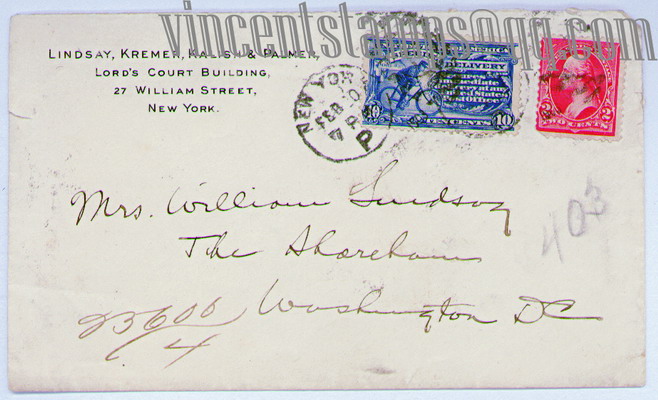 vincentstamps@qq.com
LINDSAY, KREMER, KALISH & PALMER,
LORD'S COURT BUILDING,
27 WILLIAM STREET,
NEW YORK.
NEW YORK
FEB
P
DELIVERY
10 TEN CENTS 10
2 TWO CENTS 2
Mrs. William Lindsay
The Shoreham
Washington DC
403
23606
4